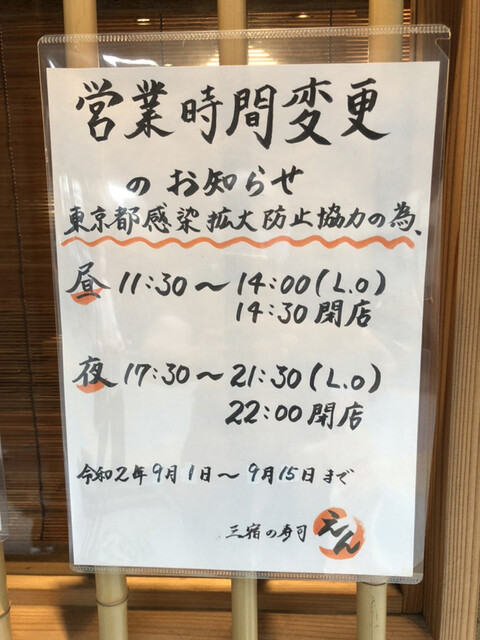 営業時間変更
のお知らせ
東京都感染拡大防止協力の為、
昼 11:30～14:00(L.o)
14:30閉店
夜 17:30～21:30(L.o)
22:00閉店
令和2年9月1日～9月15日まで
三宿の寿司 えん